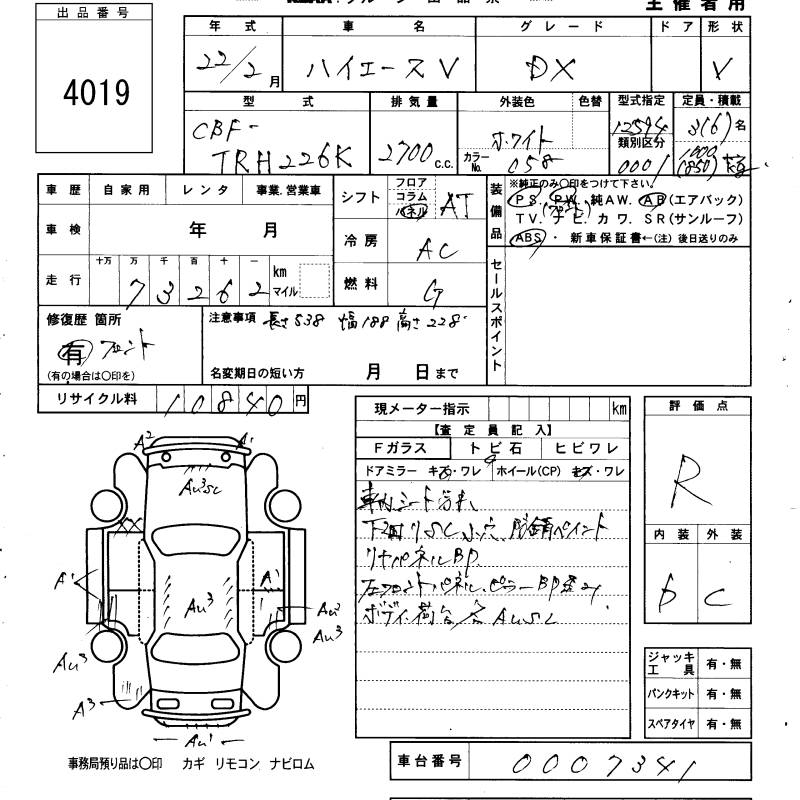 主催者用
出品番号
4019
年式 車名 グレード ドア 形状
22/2月 ハイエースV DX V
型式 排気量 外装色 色替 型式指定 定員・積載
CBF-
TRH226K 2700 c.c. ホワイト カラーNo. 058 12594 類別区分 0001 3(6)名 1000(850)
車歴 自家用 レンタ 事業.営業車 シフト フロア コラム パネル AT
車検 年 月 冷房 AC
走行 十万 万 千 百 十 一 73262 km マイル 燃料 G
装備品
※純正のみ○印をつけて下さい。
PS. PW. 純AW. AB(エアバック)
TV. ナビ. カワ. SR(サンルーフ)
ABS ・ 新車保証書←(注)後日送りのみ
セールスポイント
修復歴 箇所
有 フロント
(有の場合は○印を)
注意事項 長さ538 幅188 高さ228
名変期日の短い方 月 日まで
リサイクル料 10840円
現メーター指示 km
【査定員記入】
Fガラス トビ石 ヒビワレ
ドアミラー キズ・ワレ ホイール(CP) キズ・ワレ
車内シート汚れ
下廻りSC 小穴 防錆ペイント
リヤパネルBP
フロントパネル、ピラーBP
ボディ、荷台 AUSC
評価点
R
内装 外装
D C
ジャッキ工具 有・無
パンクキット 有・無
スペアタイヤ 有・無
A2 A1
AU3SC
XX
A1 AU3 A1
AU2
AU3
AU3
A3
AU1
事務局預り品は○印 カギ リモコン ナビロム
車台番号 0007341